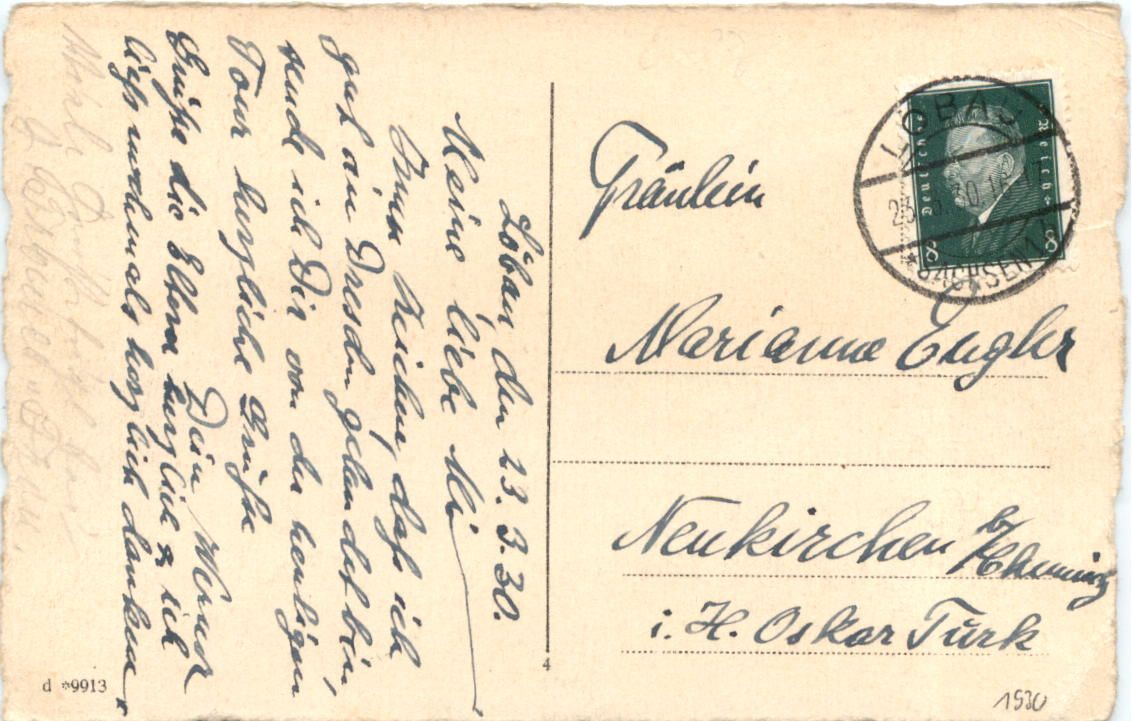 Löbau, den 23.3.30.
Meine liebe Mi
Zum Zeichen, daß ich
gut in Dresden gelandet bin,
sende ich Dir von der heutigen
Tour herzliche Grüße
Dein Werner
Grüße die Eltern herzlich & ich
ließe nochmals herzlich danken.
Fräulein
Marianne Engler
Neukirchen b/Chemnitz
i. H. Oskar Türk
LÖBAU
SACHSEN
Deutsches Reich
8 8
d *9913
4
1930